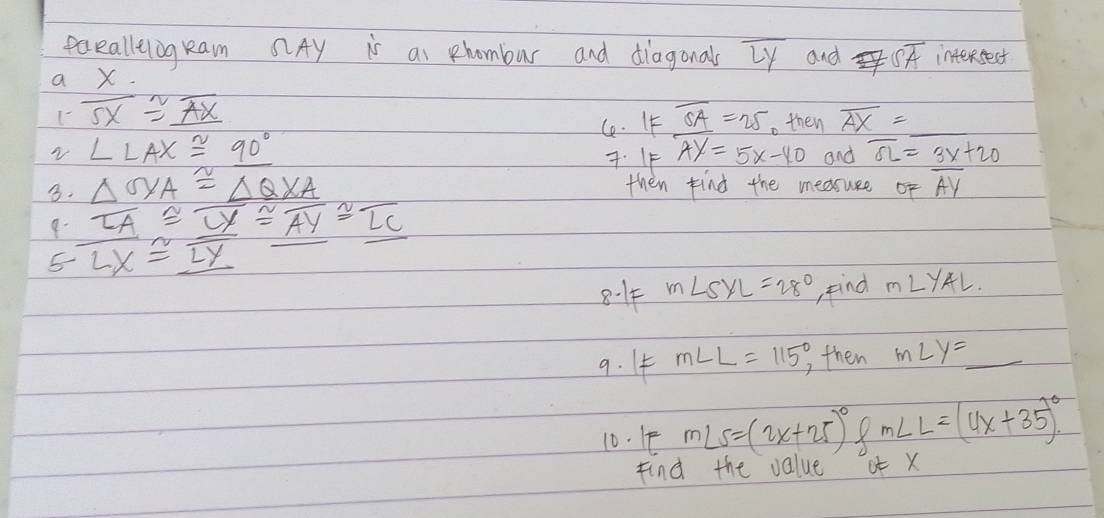 Parallelogram SLAY is a rhombus and diagonals LY and SA intersect
a X.
1. SX ≅ AX
2 ∠LAX ≅ 90°
3. △SYA ≅ △QXA
4. LA ≅ LY ≅ AY ≅ LC
5- LX ≅ LY
6. If SA = 25, then AX = ___
7. If AY = 5x-40 and SL = 3x+20
then find the measure of AY
8. If m∠SYL = 28°, find m∠YAL.
9. If m∠L = 115°, then m∠Y= ___
10. If m∠S=(2x+25)° & m∠L=(4x+35)°.
Find the value of x